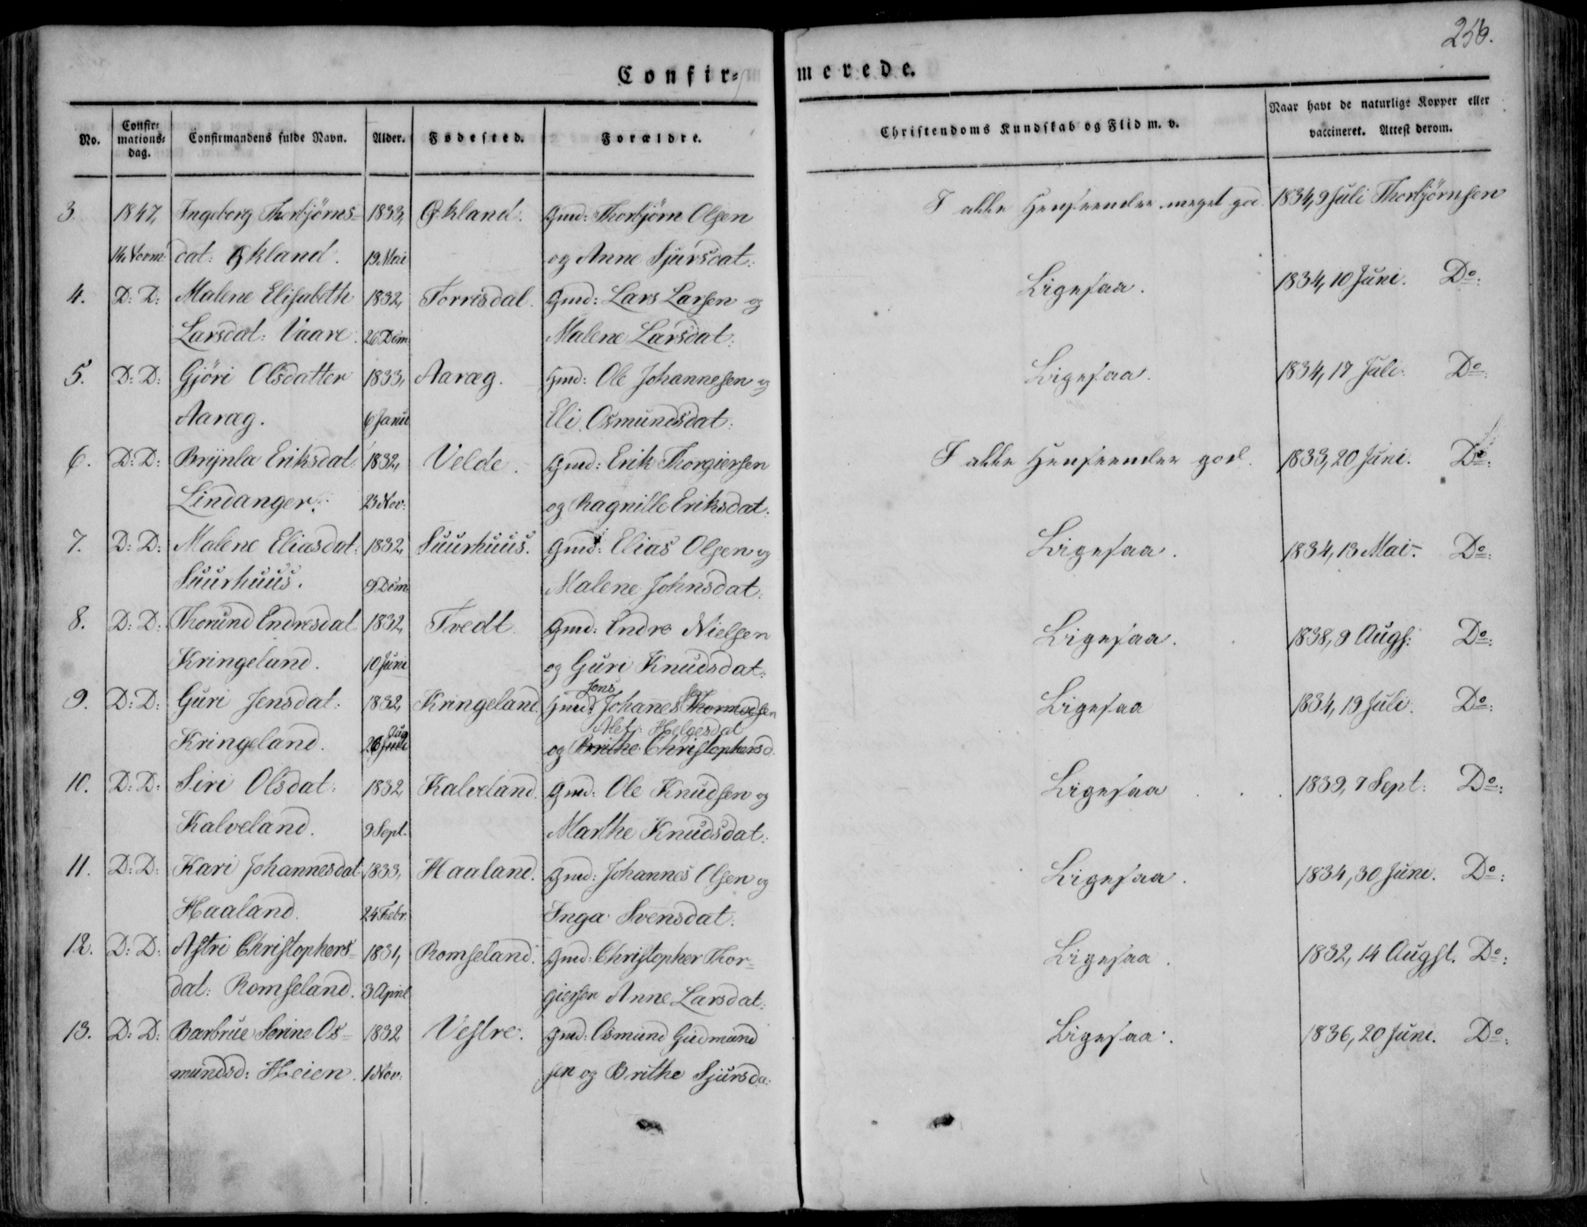 256.
Confir= merede.
No. Confir= mations= dag. Confirmandens fulde Navn. Alder. Fødested. Forældre. Christendoms Kundskab og Flid m. v. Naar havt de naturlige Kopper eller vaccineret. Attest derom.
3. 1847, Ingeborg Thorbjörns= 1833, Økland. Gmd: Thorbjörn Olsen I alle Henseender meget god 1834, 9 Juli Thorbjörnsen
14 Novm: dat: Økland. 19 Mai og Anne Sjursdat:
4. D: D: Malene Elisabeth 1832, Torresdal. Gmd: Lars Larsen og Ligesaa. 1834, 10 Juni. Do:
Larsdat: Vaare. 26 Dcm Malene Larsdat:
5. D: D: Gjöri Olsdatter 1833, Aaræg. Gmd: Ole Johannesen og Ligesaa. 1834, 17 Juli. Do:
Aaræg. 6 Janu Eli Osmundsdat:
6. D: D: Brynla Eriksdat 1832, Velde. Gmd: Erik Thorgiersen I alle Henseender god. 1833, 20 Juni. Do:
Lindanger. 23 Nov: og Ragnille Eriksdat.
7. D: D: Malene Eliasdat: 1832, Suurhuus. Gmd: Elias Olsen og Ligesaa. 1834, 13 Mai. Do:
Suurhuus. 9 Dcm Malene Johnsdat:
8. D: D: Thorund Endresdat 1832, Tvedt. Gmd: Endre Nielsen Ligesaa. 1838, 9 Augs: Do:
Kringeland. 10 Juni og Guri Knudsdat:
Jens
9. D: D: Guri Jensdat: 1832, Kringeland Gmd: Johanes Thormodsen Ligesaa 1834, 19 Juli. Do:
Aug Helgesdat
Kringeland. og Brithe Christophersd.
10. D: D: Siri Olsdat: 1832, Kalveland Gmd: Ole Knudsen og Ligesaa 1839, 7 Sept: Do:
Kalveland. 9 Sept. Marthe Knudsdat:
11. D: D: Kari Johannesdat 1833, Haaland. Gmd: Johannes Olsen og Ligesaa. 1834, 30 Juni. Do:
Haaland. 24 Febr. Inga Svensdat:
12. D: D: Astri Christophers= 1831, Romseland. Gmd: Christopher Thor= Ligesaa. 1832, 14 Augst. Do:
dat: Romseland. 3 April giersen Anne Larsdat:
13. D: D: Barbrue Serine Os= 1832 Vestre. Gmd: Osmund Gudmund Ligesaa. 1836, 20 Juni. Do:
mundsd: Heien. 1 Nov: sen og Brithe Sjursda: